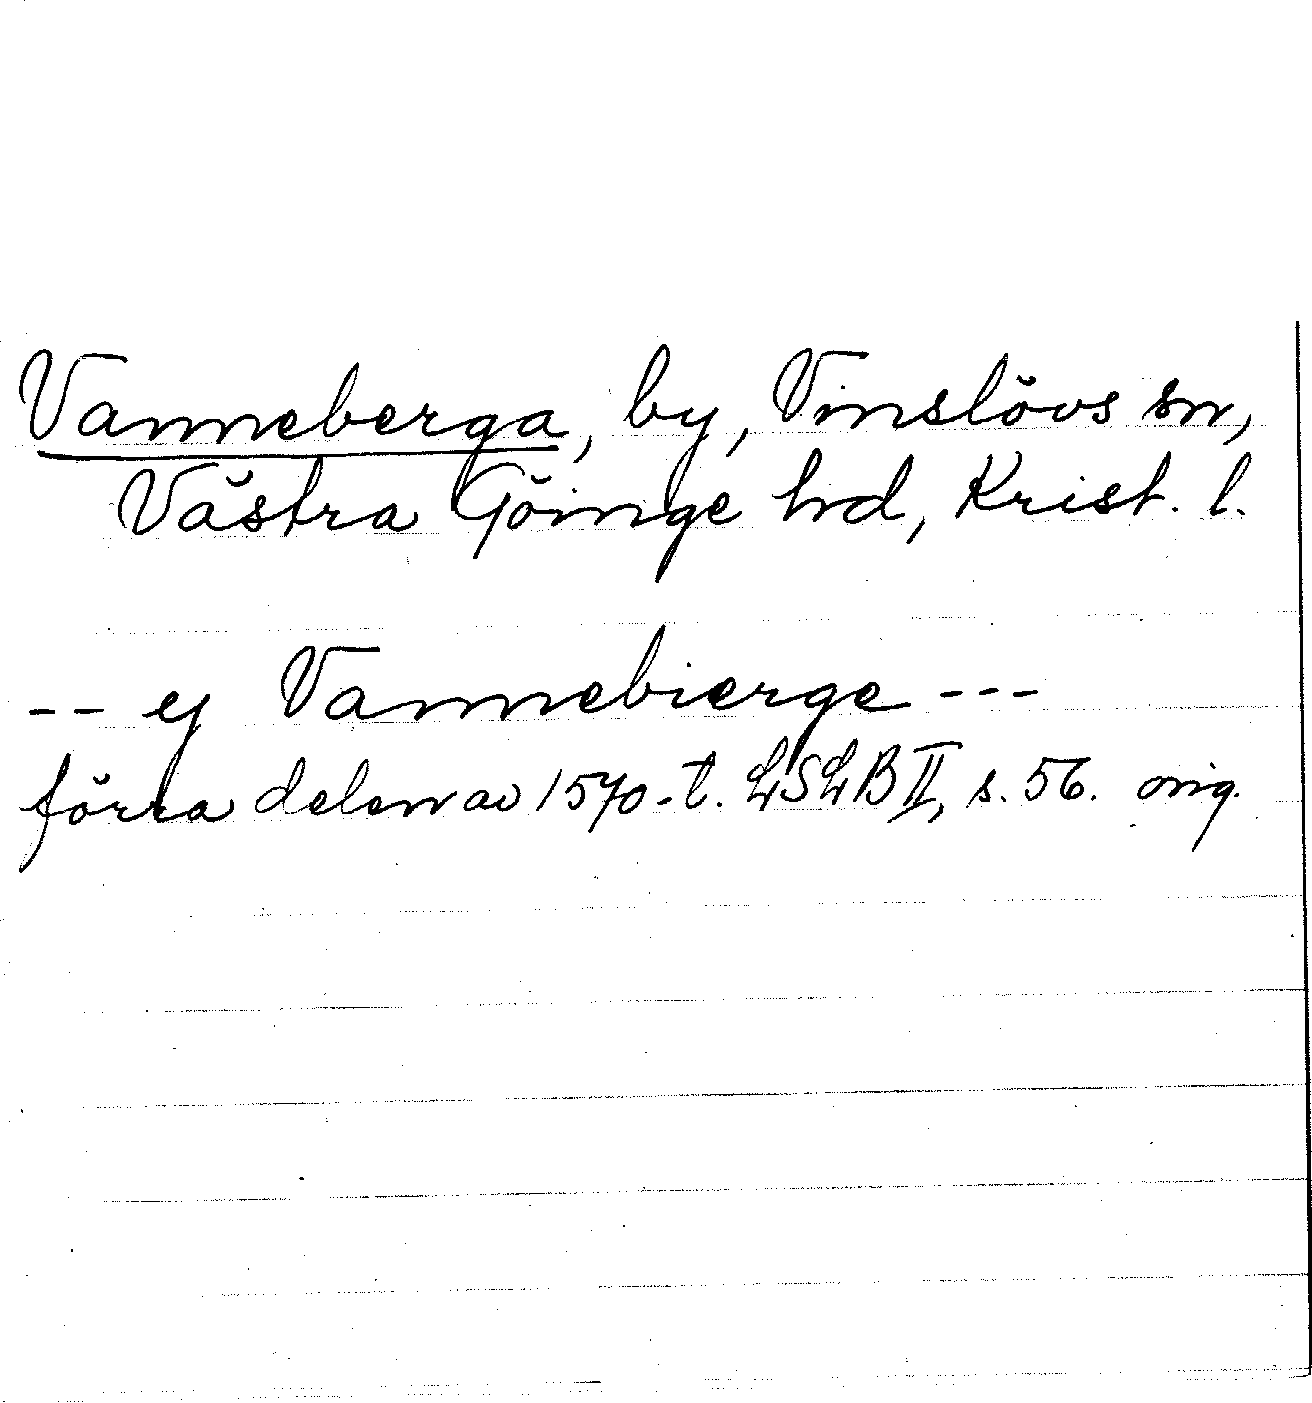 Vanneberga, by, Vinslövs sn,
Västra Göinge hd, Krist. l.
-- ej Vannebierge ---
förra delen av 1570-t. LSLB II, s. 56. orig.